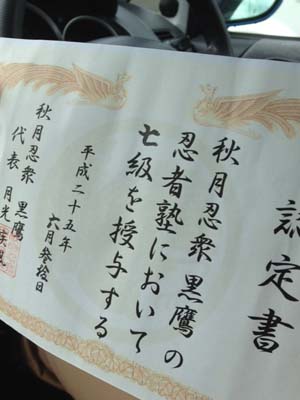 認定書
秋月忍衆 黒鷹の
忍者塾において
七級を授与する
平成二十五年
六月参拾日
秋月忍衆 黒鷹
代表 月光